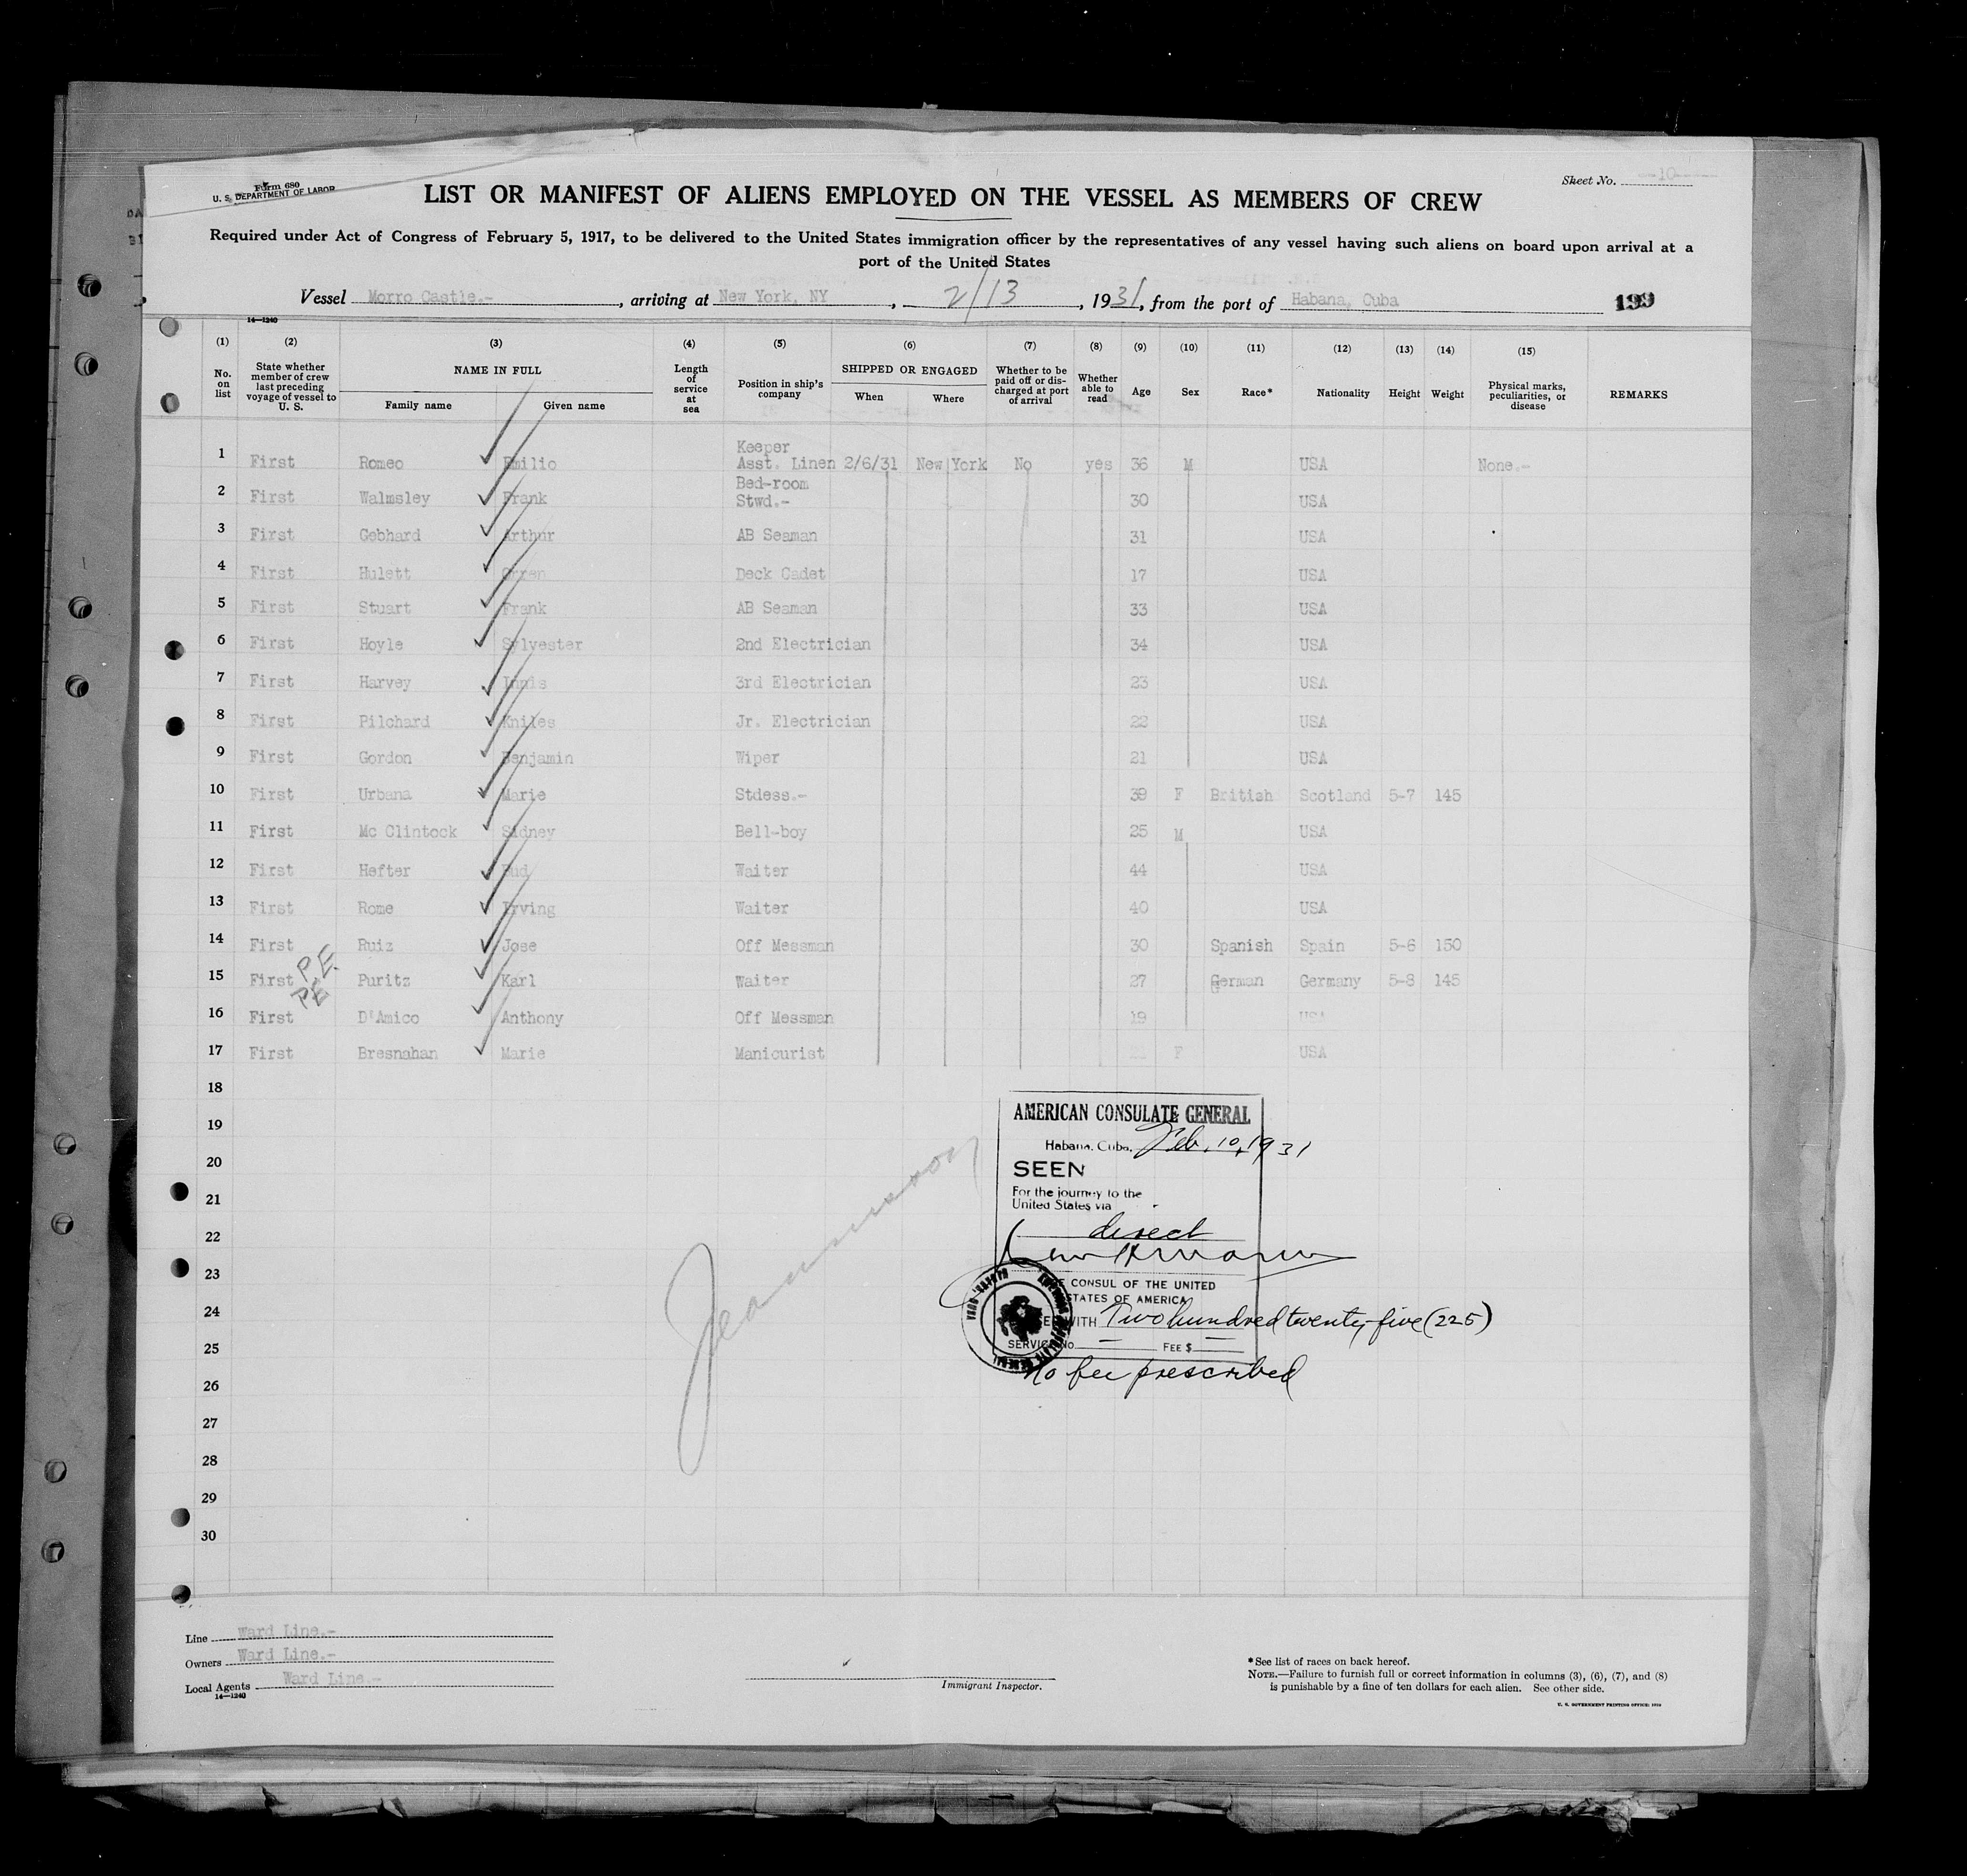 Form 680
U. S. DEPARTMENT OF LABOR
Sheet No. --10--
LIST OR MANIFEST OF ALIENS EMPLOYED ON THE VESSEL AS MEMBERS OF CREW
Required under Act of Congress of February 5, 1917, to be delivered to the United States immigration officer by the representatives of any vessel having such aliens on board upon arrival at a
port of the United States
Vessel Morro Castle.-, arriving at New York, NY, 2/13, 1931, from the port of Habana, Cuba 199
14—1240
(1) (2) (3) (4) (5) (6) (7) (8) (9) (10) (11) (12) (13) (14) (15)
No. on list State whether member of crew last preceding voyage of vessel to U. S. NAME IN FULL Family name Given name Length of service at sea Position in ship's company SHIPPED OR ENGAGED When Where Whether to be paid off or discharged at port of arrival Whether able to read Age Sex Race* Nationality Height Weight Physical marks, peculiarities, or disease REMARKS
1 First Romeo Emilio Keeper Asst. Linen 2/6/31 New York No yes 36 M USA None.-
2 First Walmsley Frank Bed-room Stwd.- 30 USA
3 First Gebhard Arthur AB Seaman 31 USA
4 First Hulett Deck Cadet 17 USA
5 First Stuart Frank AB Seaman 33 USA
6 First Hoyle Sylvester 2nd Electrician 34 USA
7 First Harvey 3rd Electrician 23 USA
8 First Pilchard Kniles Jr. Electrician 22 USA
9 First Gordon Benjamin Wiper 21 USA
10 First Urbana Marie Stdess.- 39 F British Scotland 5-7 145
11 First Mc Clintock Sidney Bell-boy 25 M USA
12 First Hefter Bud Waiter 44 USA
13 First Rome Irving Waiter 40 USA
14 First Ruiz Jose Off Messman 30 Spanish Spain 5-6 150
P.E.
15 First Puritz Karl Waiter 27 German Germany 5-8 145
PE
16 First D'Amico Anthony Off Messman 19 USA
17 First Bresnahan Marie Manicurist F USA
18
19
20
21
22
23
24
25
26
27
28
29
30
AMERICAN CONSULATE GENERAL
Habana, Cuba, Feb. 10, 1931
SEEN
For the journey to the
United States via
direct
CONSUL OF THE UNITED
STATES OF AMERICA
WITH Two hundred twenty-five (225)
SERVICE No. — FEE $ —
No fee prescribed
Line Ward Line.-
Owners Ward Line.-
Local Agents Ward Line.-
14—1240
Immigrant Inspector.
*See list of races on back hereof.
NOTE.—Failure to furnish full or correct information in columns (3), (6), (7), and (8)
is punishable by a fine of ten dollars for each alien. See other side.